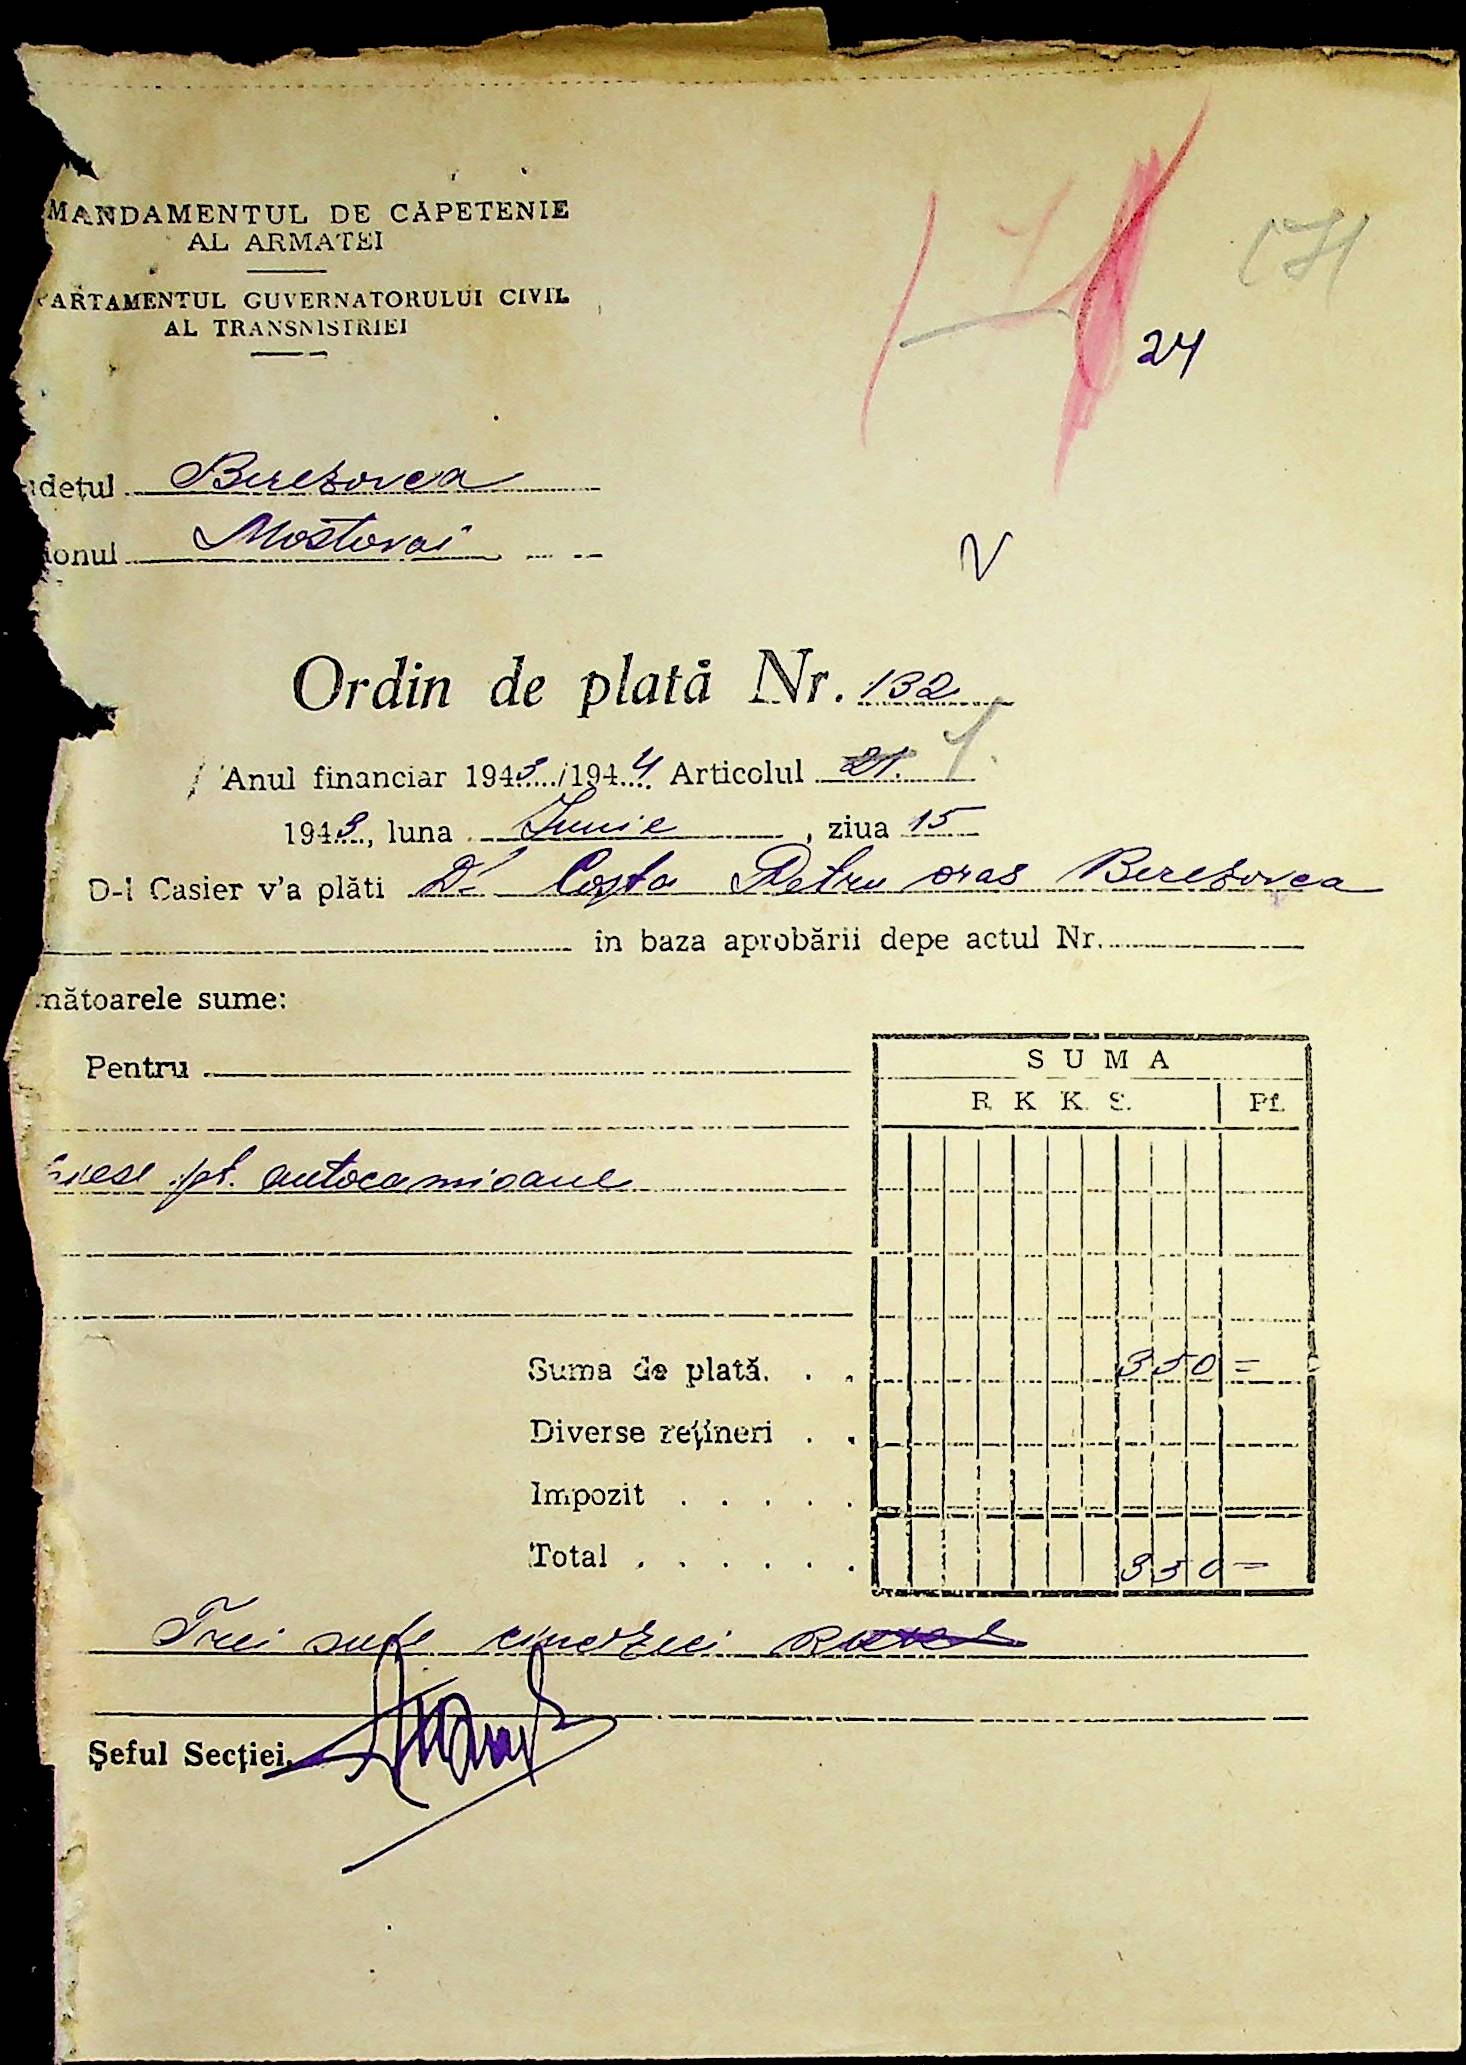 MANDAMENTUL DE CAPETENIE
AL ARMATEI
PARTAMENTUL GUVERNATORULUI CIVIL
AL TRANSNISTRIEI
24
udețul Berezovca
ionul Mostovoi
V
Ordin de plată Nr. 132
Anul financiar 1943/1944 Articolul 21. 7.
1943, luna Iunie, ziua 15
D-l Casier v'a plăti Dl Costa Petru oras Berezovca
in baza aprobării depe actul Nr.
mătoarele sume:
Pentru
SUMA
R. K. K. S. Pf.
piese pt. autocamioane
Suma de plată. . . 350 =
Diverse rețineri . .
Impozit . . . . .
Total . . . . . . 350 =
Trei sute cincizeci
Șeful Secției,